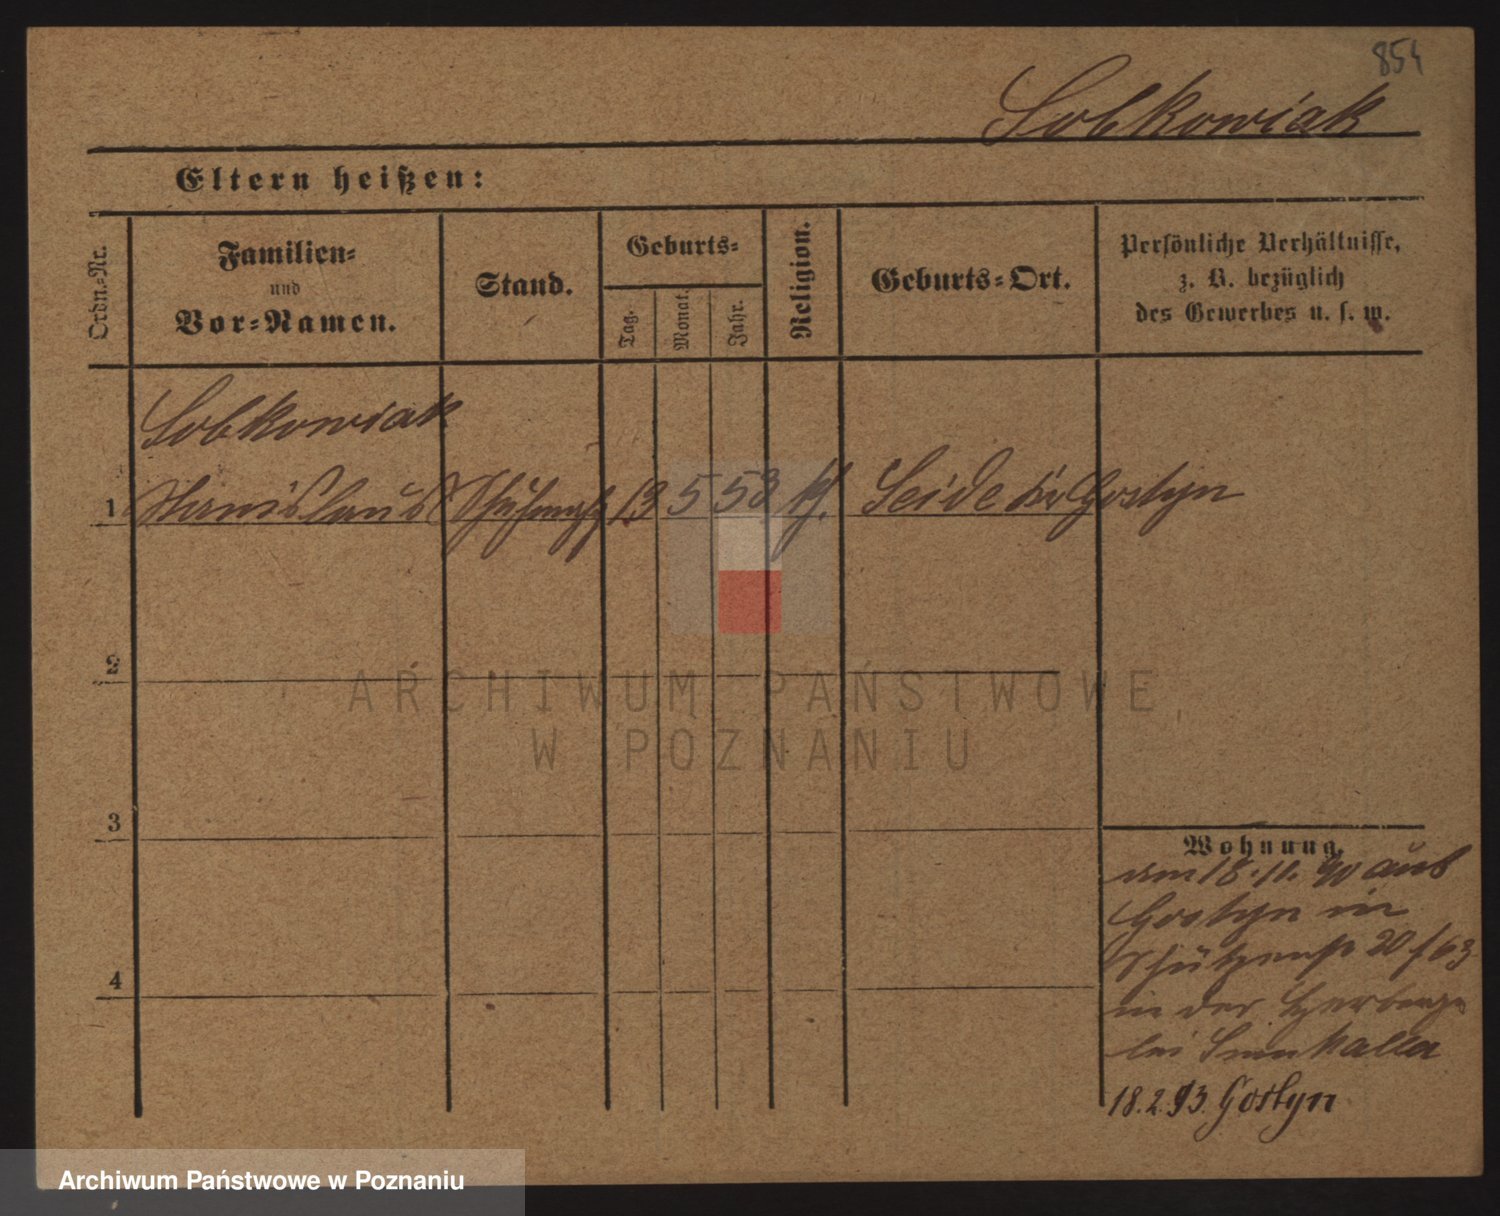 854
Sobkowiak
Eltern heißen:
Ordn.-Nr.
Familien-
und
Vor-Namen.
Stand.
Geburts-
Tag.
Monat.
Jahr.
Religion.
Geburts-Ort.
Persönliche Verhältnisse,
z. B. bezüglich
des Gewerbes u. s. w.
Sobkowiak
1 Stanislaus 13 5 53 k. Seide Gostyn
2
3
4
ARCHIWUM PAŃSTWOWE
W POZNANIU
Wohnung.
am 18.11. 90 aus
Gostyn in
Schützenstr 20/63
in der Herberge
bei
18.2.93. Gostyn
Archiwum Państwowe w Poznaniu